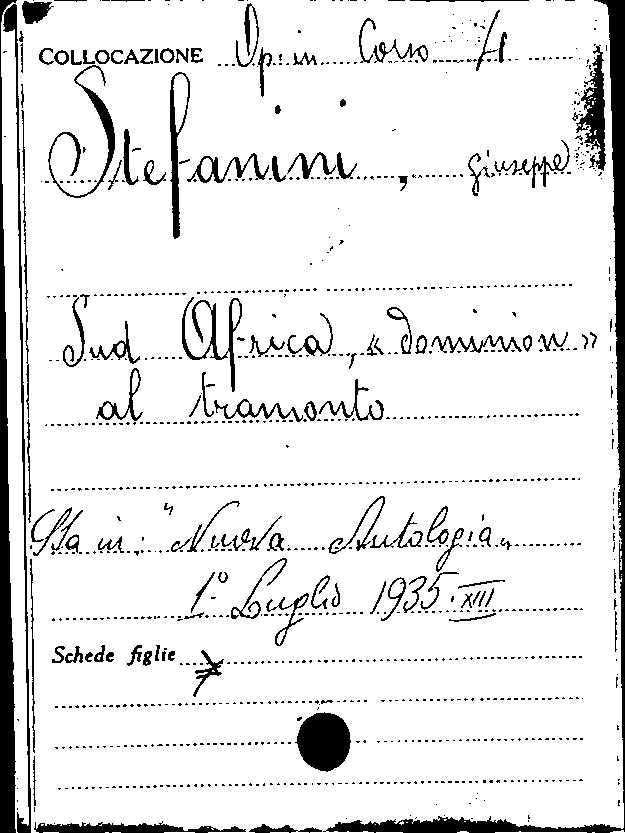 COLLOCAZIONE Op. in Corso 71
Stefanini, Giuseppe
Sud Africa, « dominion »
al tramonto
Sta in: "Nuova Antologia„
1º Luglio 1935. XIII
Schede figlie